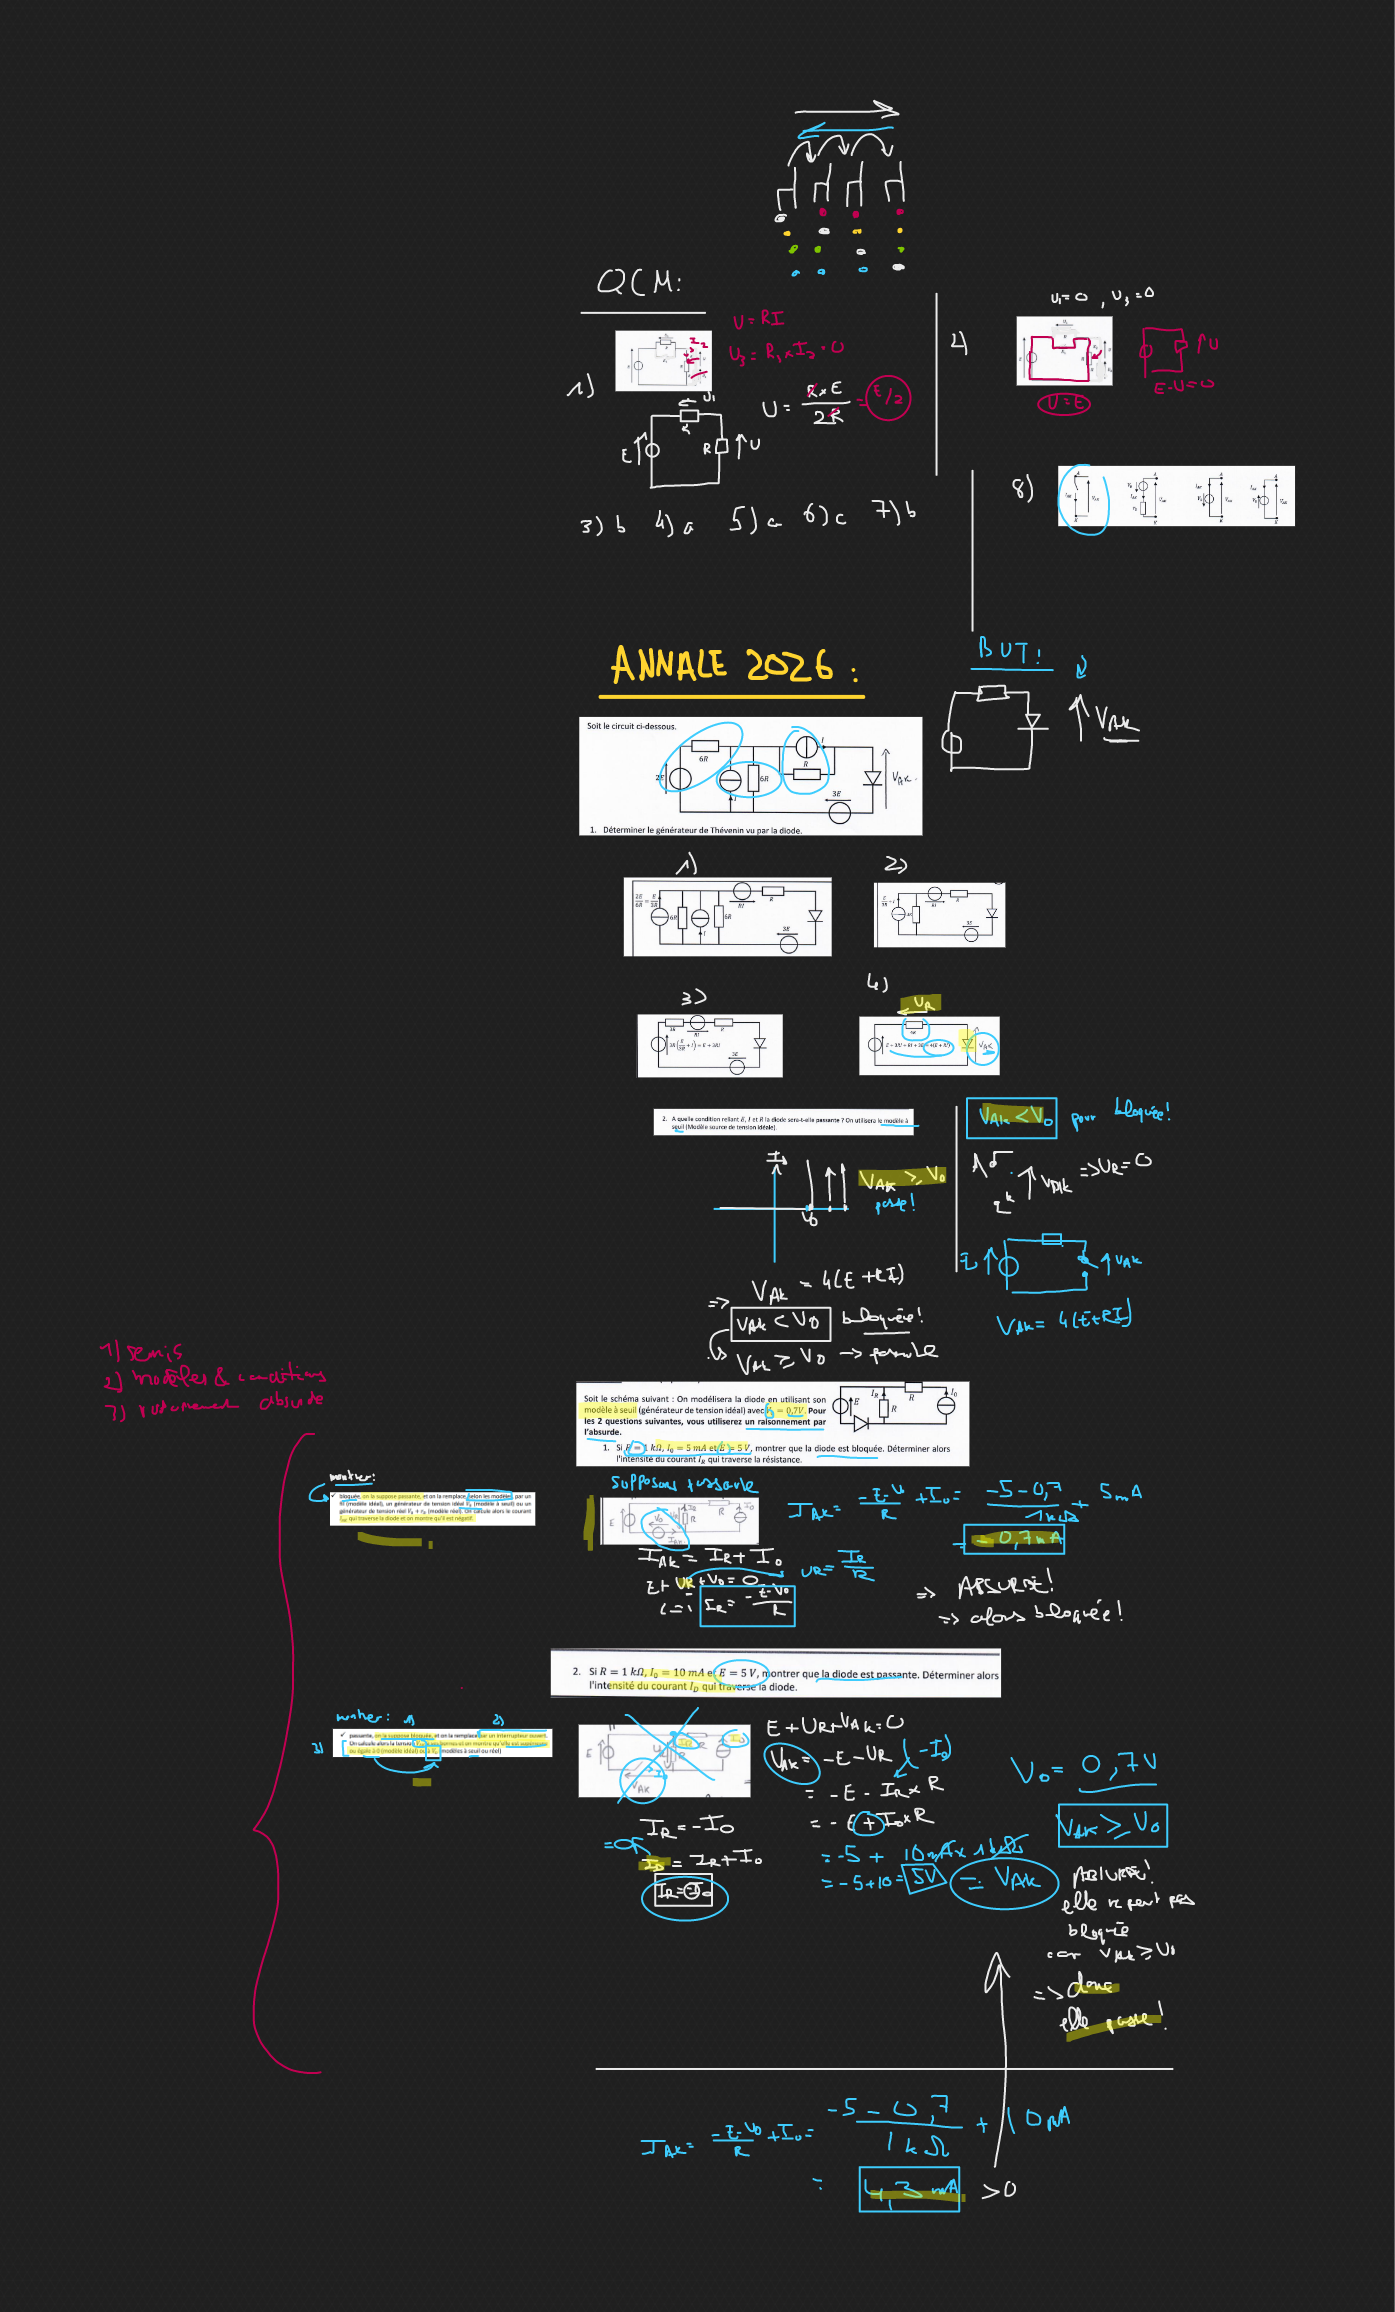 QCM:
1)
U = RI
U3 = R1 × I2 = 0
U = R×E / 2R = E/2
E
R
U
U1
2)
U1 = 0 , U3 = 0
U = E
U
E - U = 0
3) b 4) a 5) a 6) c 7) b
8)
ANNALE 2026 :
BUT !
VAK
Soit le circuit ci-dessous.
6R
R
I
2E
6R
I
3E
VAK
1. Déterminer le générateur de Thévenin vu par la diode.
1)
2E/6R = E/3R
6R
I
6R
RI
R
3E
2)
RI
R
3E
3)
3R
RI
R
3R(E/3R + I) = E + 3RI
3E
4)
UR
4R
E + 3RI + RI + 3E = 4(E + RI)
VAK
2. A quelle condition reliant E, I et R la diode sera-t-elle passante ? On utilisera le modèle à
seuil (Modèle source de tension idéale).
VAK < V0 pour bloquée !
VAK ≥ V0
passe !
V0
VAK => UR = 0
VAK
VAK = 4(E+RI)
=> VAK = 4(E + RI)
VAK < V0 bloquée !
VAK ≥ V0 → passante
1) semis
2) modèles & conditions
3) raisonnement absurde
Soit le schéma suivant : On modélisera la diode en utilisant son
modèle à seuil (générateur de tension idéal) avec V0 = 0,7V. Pour
les 2 questions suivantes, vous utiliserez un raisonnement par
l'absurde.
E
IR
R
R
I0
1. Si R = 1 kΩ, I0 = 5 mA et E = 5 V, montrer que la diode est bloquée. Déterminer alors
l'intensité du courant IR qui traverse la résistance.
montrer :
✓ bloquée, on la suppose passante, et on la remplace selon les modèles par un
fil (modèle idéal), un générateur de tension idéal V0 (modèle à seuil) ou un
générateur de tension réel V0 + r0 (modèle réel). On calcule alors le courant
IAK qui traverse la diode et on montre qu'il est négatif.
Supposons passante
E
V0
IAK
R
R
I0
IAK = IR + I0
E + UR + V0 = 0
IR = -E-V0 / R
UR = IR/R
IAK = -E-V0 / R + I0 = -5-0,7 / 1kΩ + 5mA
= -0,7mA
=> ABSURDE !
=> alors bloquée !
2. Si R = 1 kΩ, I0 = 10 mA et E = 5 V, montrer que la diode est passante. Déterminer alors
l'intensité du courant ID qui traverse la diode.
montrer : 1) 2)
3)
✓ passante, on la suppose bloquée, et on la remplace par un interrupteur ouvert.
On calcule alors la tension VAK à ses bornes et on montre qu'elle est supérieure
ou égale à 0 (modèle idéal) ou à V0 (modèles à seuil ou réel)
E
IR
I0
VAK
IR = -I0
=0
ID = IR + I0
IR = -I0
E + UR + VAK = 0
VAK = -E - UR (-I0)
= -E - IR × R
= -E + I0 × R
= -5 + 10mA × 1kΩ
= -5+10 = 5V = VAK
V0 = 0,7V
VAK ≥ V0
ABSURDE !
elle ne peut pas
bloquée
car VAK ≥ V0
=> donc
elle passe !
IAK = -E-V0 / R + I0 = -5-0,7 / 1kΩ + 10mA
= 4,3 mA > 0